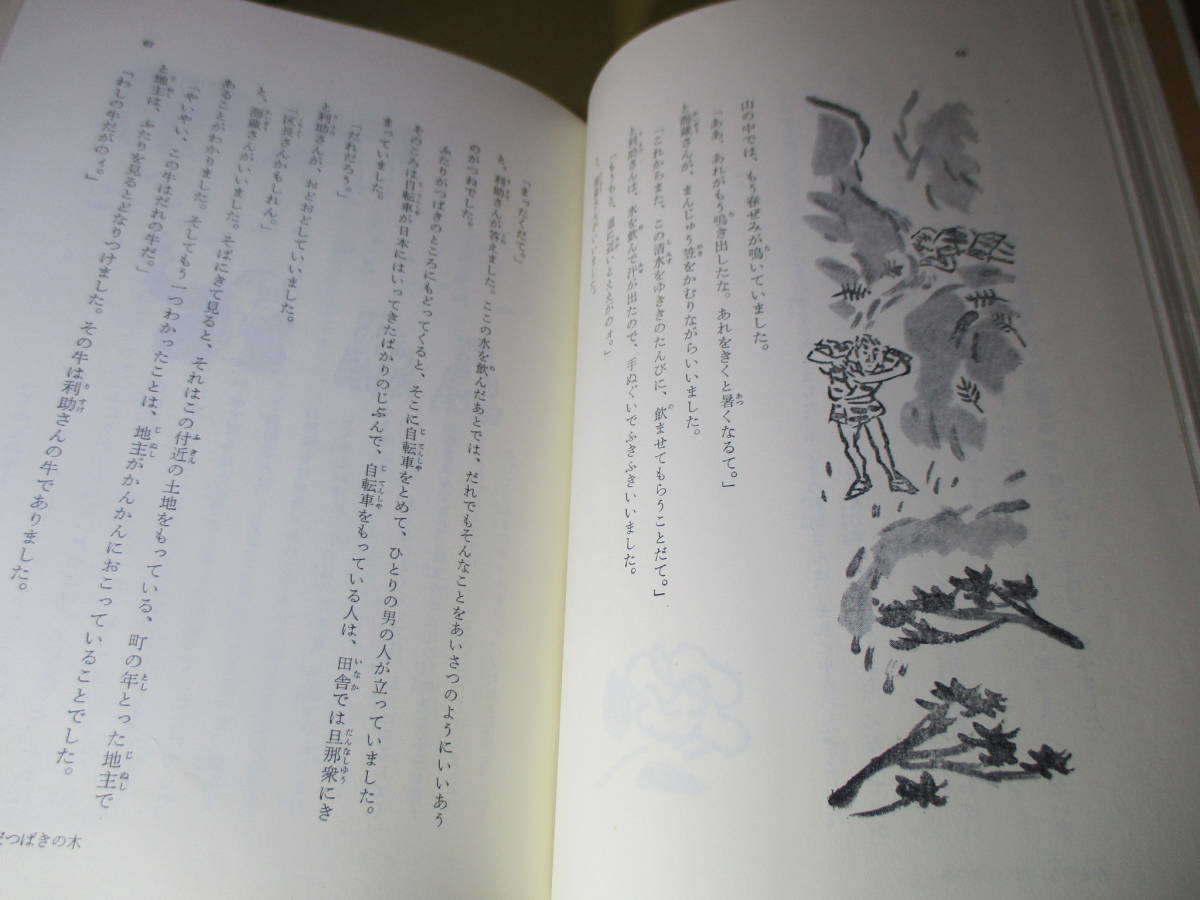 66
山の中では、もう春ぜみが鳴いていました。
「ああ、あれがもう鳴き出したな。あれをきくと暑くなるて。」
と海蔵さんが、まんじゅう笠をかむりながらいいました。
「これからまた、この清水をゆききのたんびに、飲ませてもらうことだて。」
と利助さんは、水を飲んで汗が出たので、手ぬぐいでふきふきいいました。
「もうちと、道に近いとええがのォ。」
と、海蔵さんがいいました。
67
「まったくだて。」
と、利助さんが答えました。ここの水を飲んだあとでは、だれでもそんなことをあいさつのようにいいあう
のがつねでした。
ふたりがつばきのところにもどってくると、そこに自転車をとめて、ひとりの男の人が立っていました。
そのころは自転車が日本にはいってきたばかりのじぶんで、自転車をもっている人は、田舎では旦那衆にき
まっていました。
「だれだろう。」
と利助さんが、おどおどしていいました。
「区長さんかもしれん。」
と、海蔵さんがいいました。そばにきて見ると、それはこの付近の土地をもっている、町の年とった地主で
あることがわかりました。そしてもう一つわかったことは、地主がかんかんにおこっていることでした。
「やいやい、この牛はだれの牛だ。」
と地主は、ふたりを見るとどなりつけました。その牛は利助さんの牛でありました。
「わしの牛だがのォ。」
つばきの木